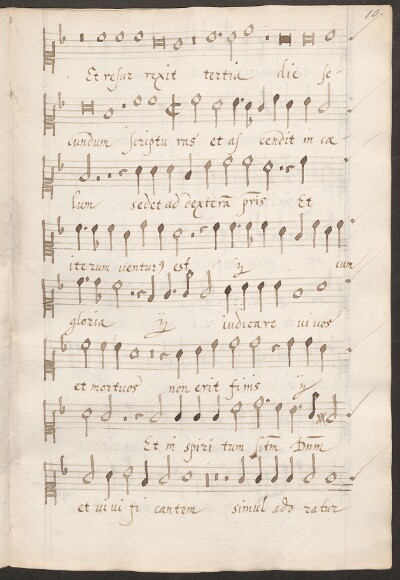 10.
Et resur rexit tertia die se-
cundum scriptu ras et as cendit in cæ
lum sedet ad dexterã pr̃is Et
iterum uentur9 est ÿ cum
gloria ÿ iudicare ui uos
et mortuos non erit finis ÿ
Et in spiri tum sctm̃ Dnm̃
et ui ui fi cantem simul ado ratur